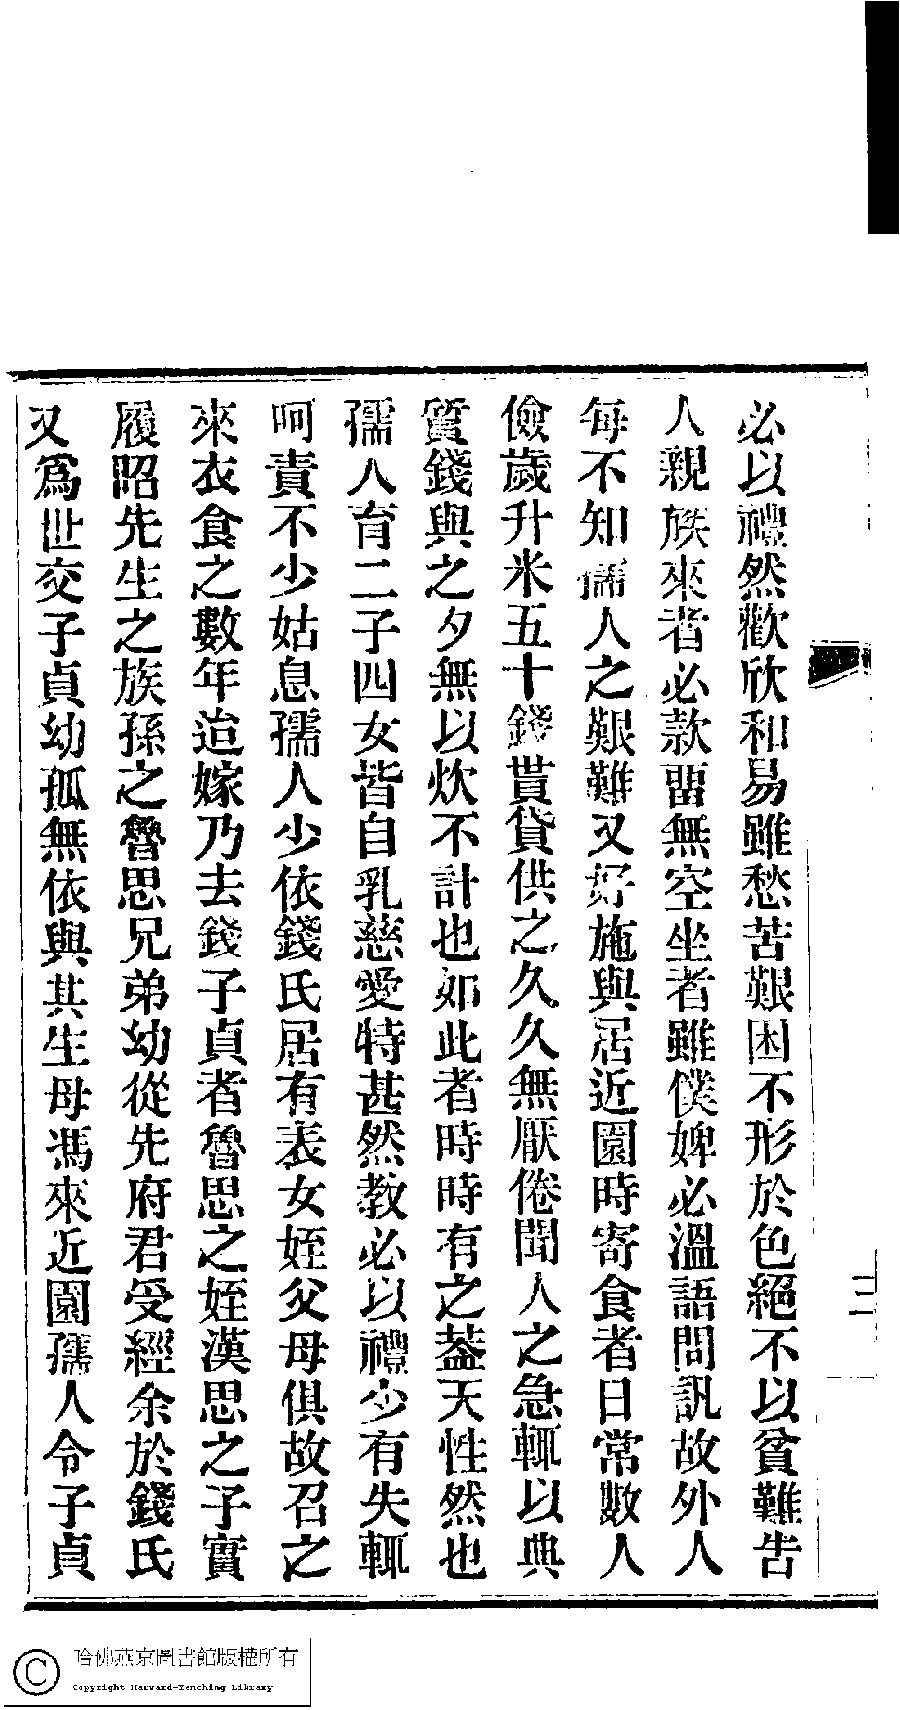 必以禮然歡欣和易雖愁苦艱困不形於色絕不以貧難告
人親族來者必款畱無空坐者雖僕婢必溫語問訊故外人
每不知孺人之艱難又好施與居近園時寄食者日常數人
儉歲升米五十錢貰貸供之久久無厭倦聞人之急輒以典
質錢與之夕無以炊不計也如此者時時有之葢天性然也
孺人育二子四女皆自乳慈愛特甚然教必以禮少有失輒
呵責不少姑息孺人少依錢氏居有表女姪父母俱故召之
來衣食之數年迨嫁乃去錢子貞者魯思之姪漢思之子實
履昭先生之族孫之魯思兄弟幼從先府君受經余於錢氏
又爲世交子貞幼孤無依與其生母馮來近園孺人令子貞
二
哈佛燕京圖書館版權所有
Copyright Harvard-Yenching Library